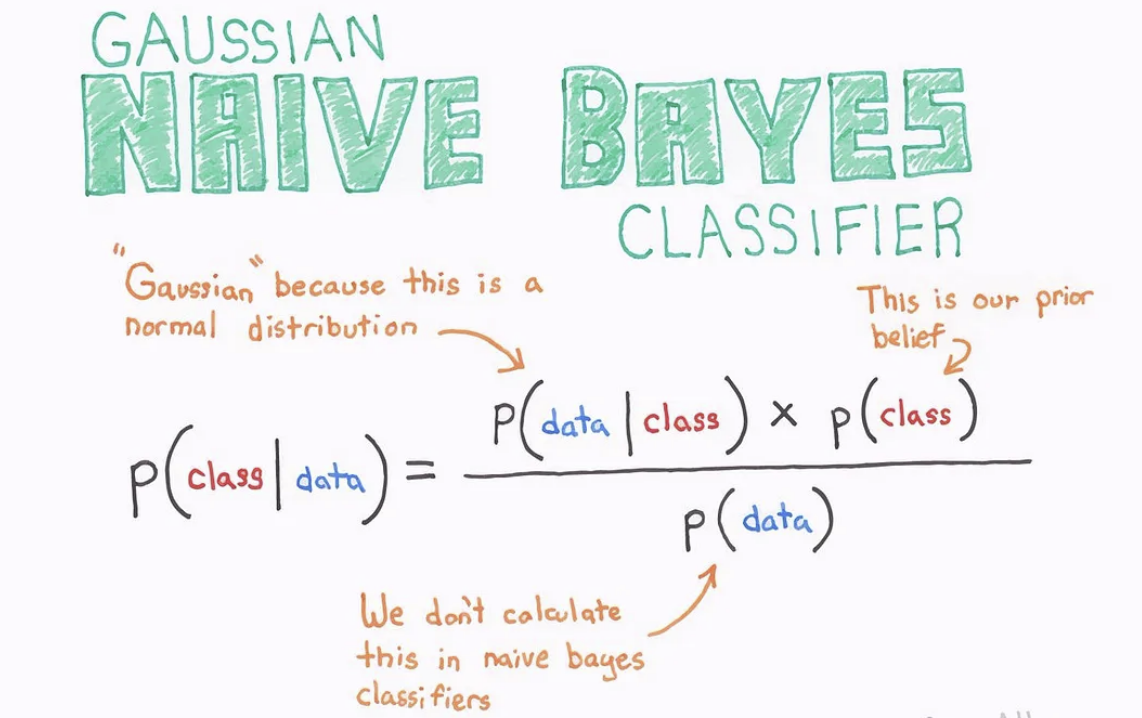 GAUSSIAN
NAIVE BAYES
CLASSIFIER
"Gaussian" because this is a
normal distribution
This is our prior
belief
p(class|data) = p(data|class) × p(class)
p(data)
We don't calculate
this in naive bayes
classifiers